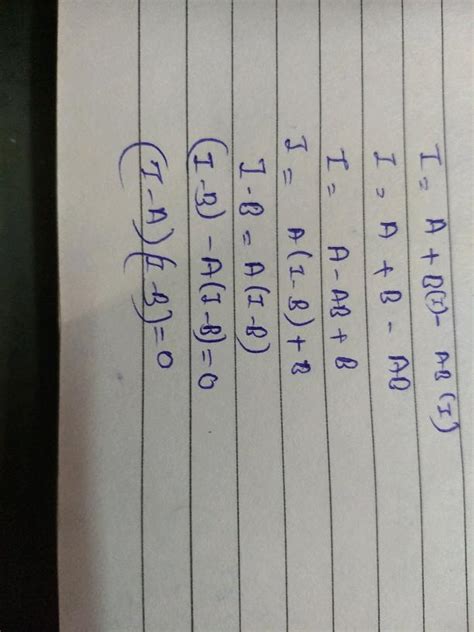 I = A + B(I) - AB(I)
I = A + B - AB
I = A - AB + B
I = A(I-B) + B
I - B = A(I-B)
(I-B) - A(I-B) = 0
(I-A)(I-B) = 0